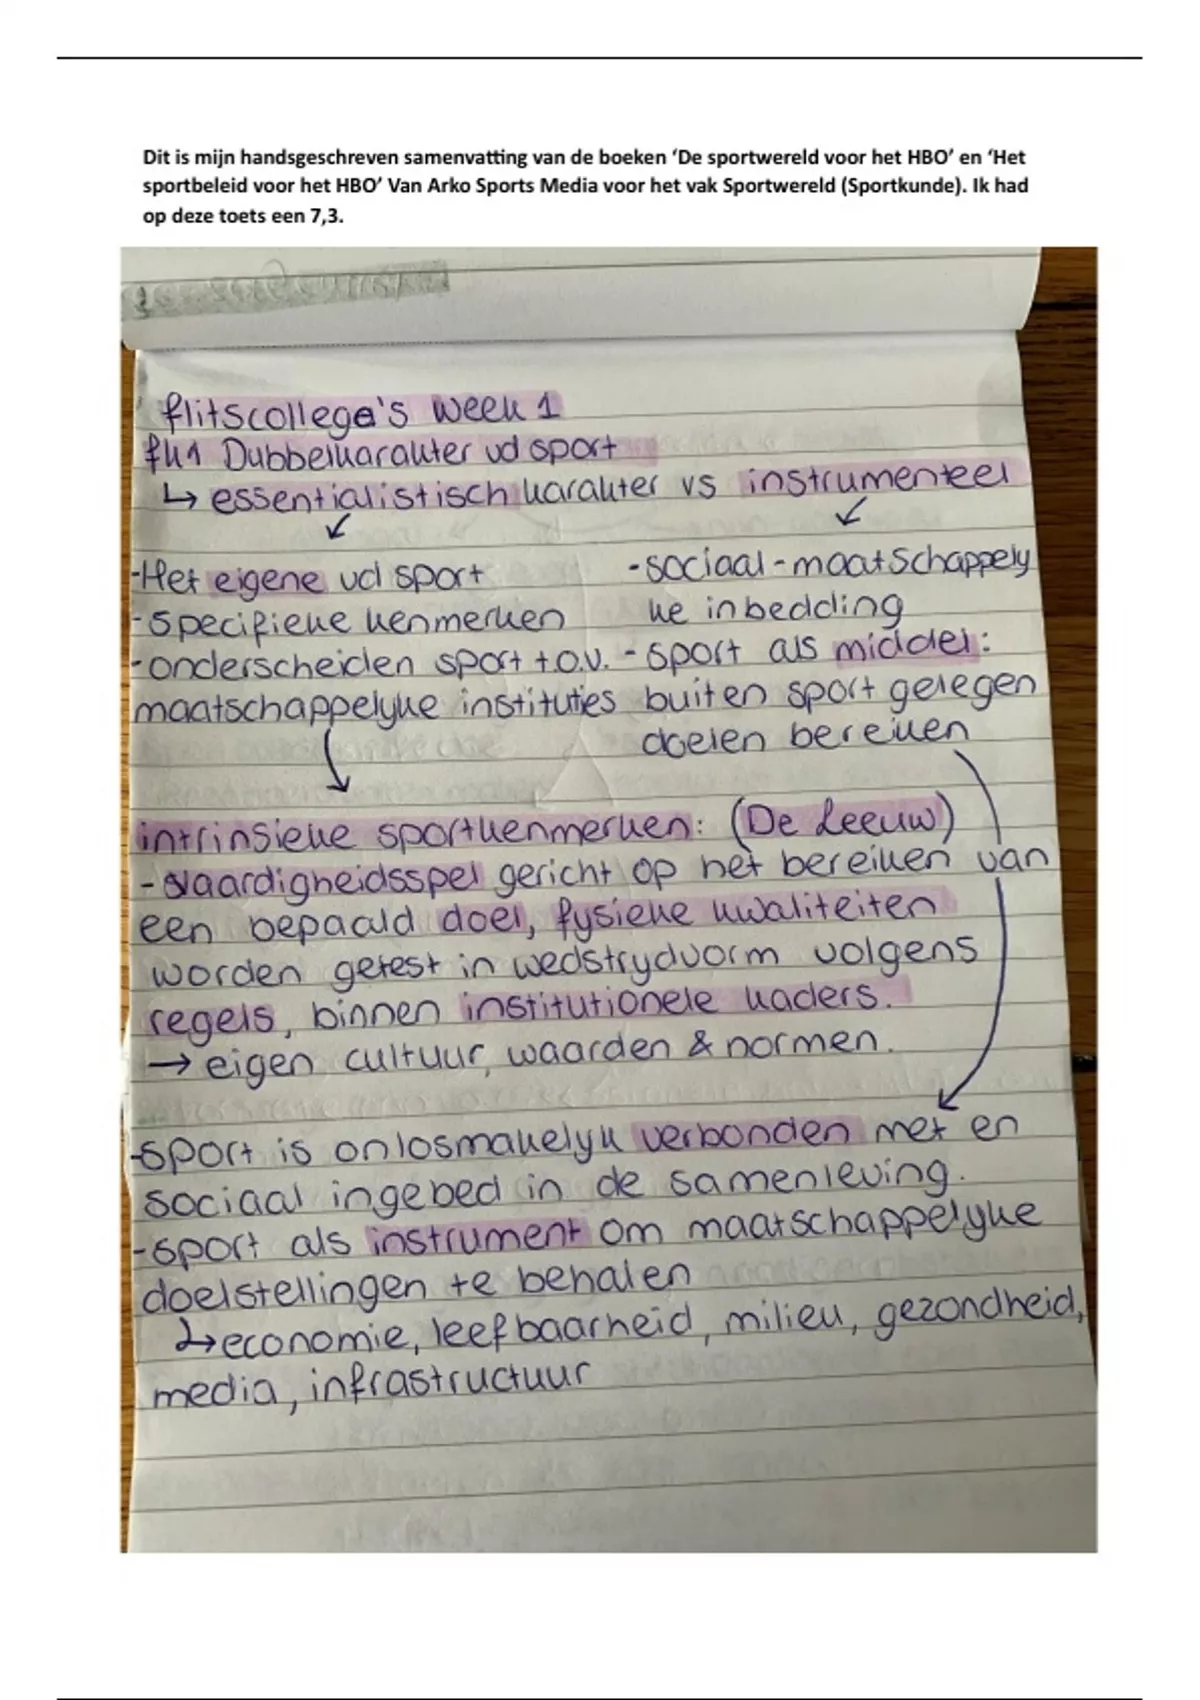 Dit is mijn handsgeschreven samenvatting van de boeken ‘De sportwereld voor het HBO’ en ‘Het
sportbeleid voor het HBO’ Van Arko Sports Media voor het vak Sportwereld (Sportkunde). Ik had
op deze toets een 7,3.
flitscollege's week 1
fk1 Dubbelkarakter vd sport
↳ essentialistisch karakter vs instrumenteel
-Het eigene vd sport
-specifieke kenmerken
-onderscheiden sport t.o.v.
maatschappelyke instituties
-sociaal-maatschappely
ke inbedding
-sport als middel:
buiten sport gelegen
doelen bereiken
intrinsieke sportkenmerken: (De Leeuw)
-vaardigheidsspel gericht op het bereiken van
een bepaald doel, fysieke kwaliteiten
worden getest in wedstrydvorm volgens
regels, binnen institutionele kaders.
→ eigen cultuur, waarden & normen.
-sport is onlosmakelyk verbonden met en
sociaal ingebed in de samenleving.
-sport als instrument om maatschappelyke
doelstellingen te behalen
↳economie, leefbaarheid, milieu, gezondheid,
media, infrastructuur